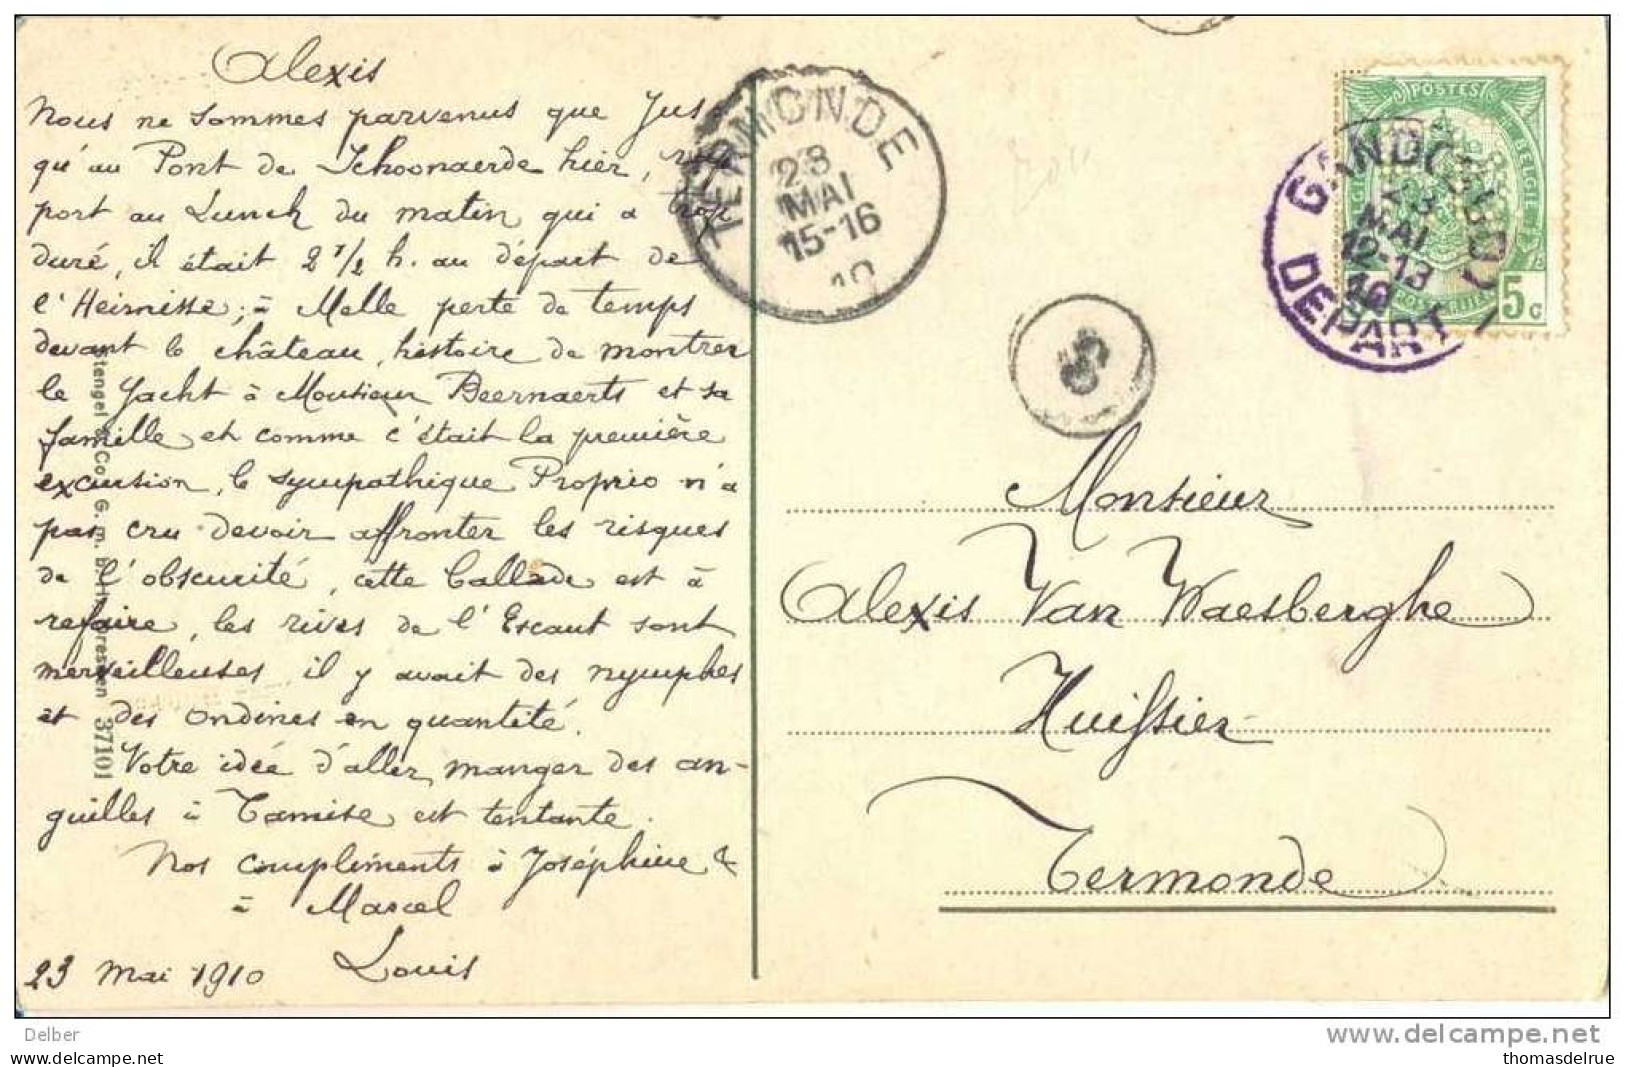 Alexis
Nous ne sommes parvenus que Jus-
qu'au Pont de Schoonaerde hier, rap
port au Lunch du matin qui a trop
duré, il était 2 1/2 h. au départ de
l'Heirnisse; à Melle perte de temps
devant le château, histoire de montrer
le Yacht à Monsieur Beernaerts et sa
famille et comme c'était la première
excursion, le sympathique Proprio n'a
pas cru devoir affronter les risques
de l'obscurité, cette ballade est à
refaire, les rives de l'Escaut sont
merveilleuses, il y avait des nymphes
et des ondines en quantité.
Votre idée d'aller manger des an-
guilles à Tamise est tentante.
Nos compliments à Joséphine &
à Marcel
23 mai 1910 Louis
Stengel & Co. G. m. b. H. Dresden 37101
TERMONDE
23
MAI
15-16
10
POSTES
5c
23
MAI
12-13
10
DEPART
Monsieur
Alexis Van Waesberghe
Huissier
Termonde
Delber
delcampe.net
www.delcampe.net
thomasdelrue